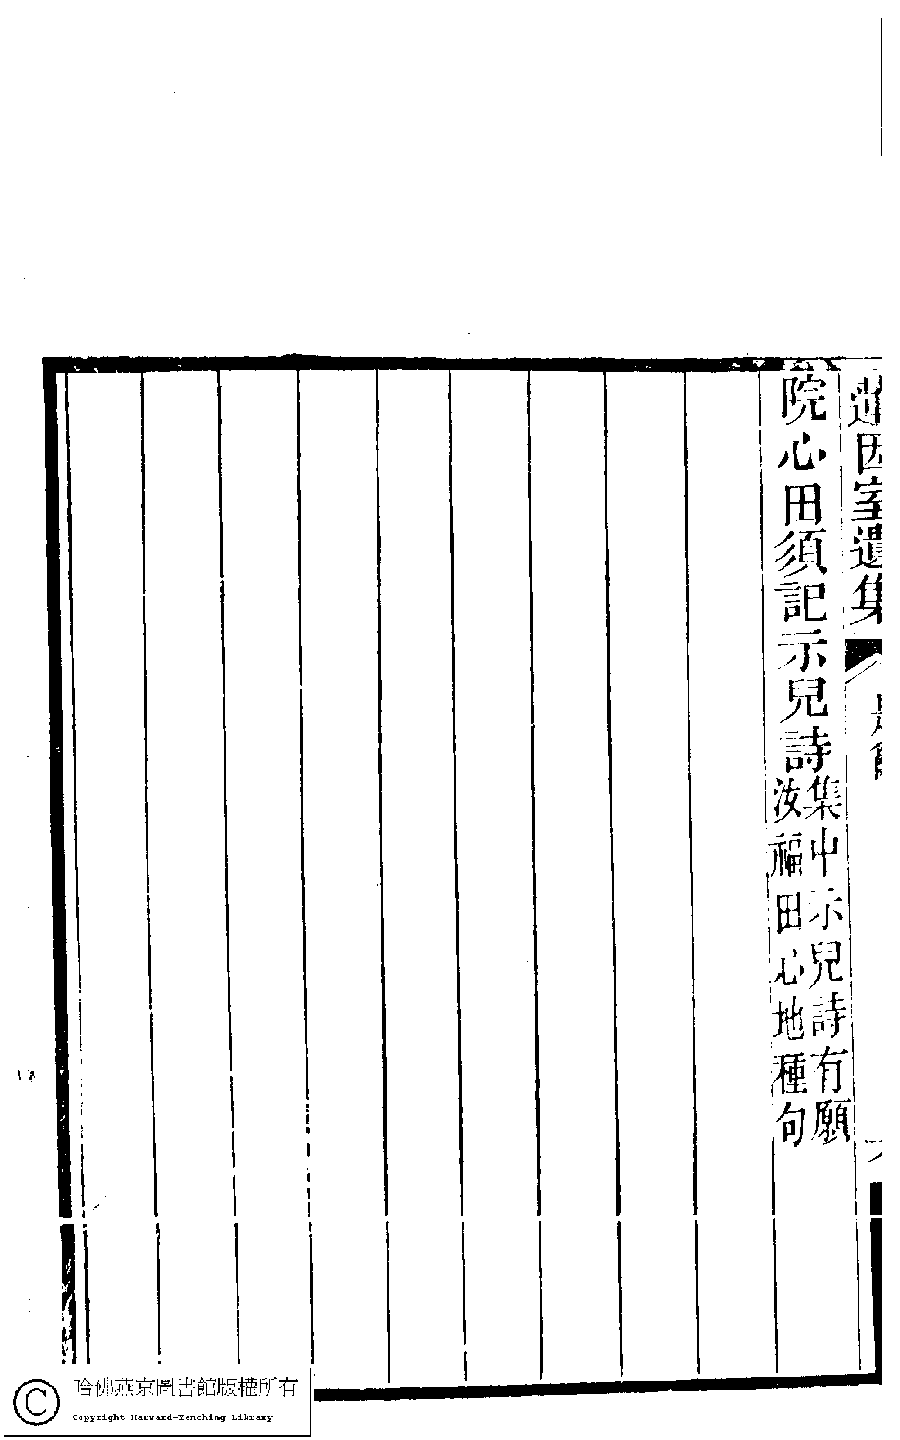 蓮因室遺集
院心田須記示兒詩
集中示兒詩有願
汝福田心地種句
哈佛燕京圖書館版權所有
Copyright Harvard-Yenching Library